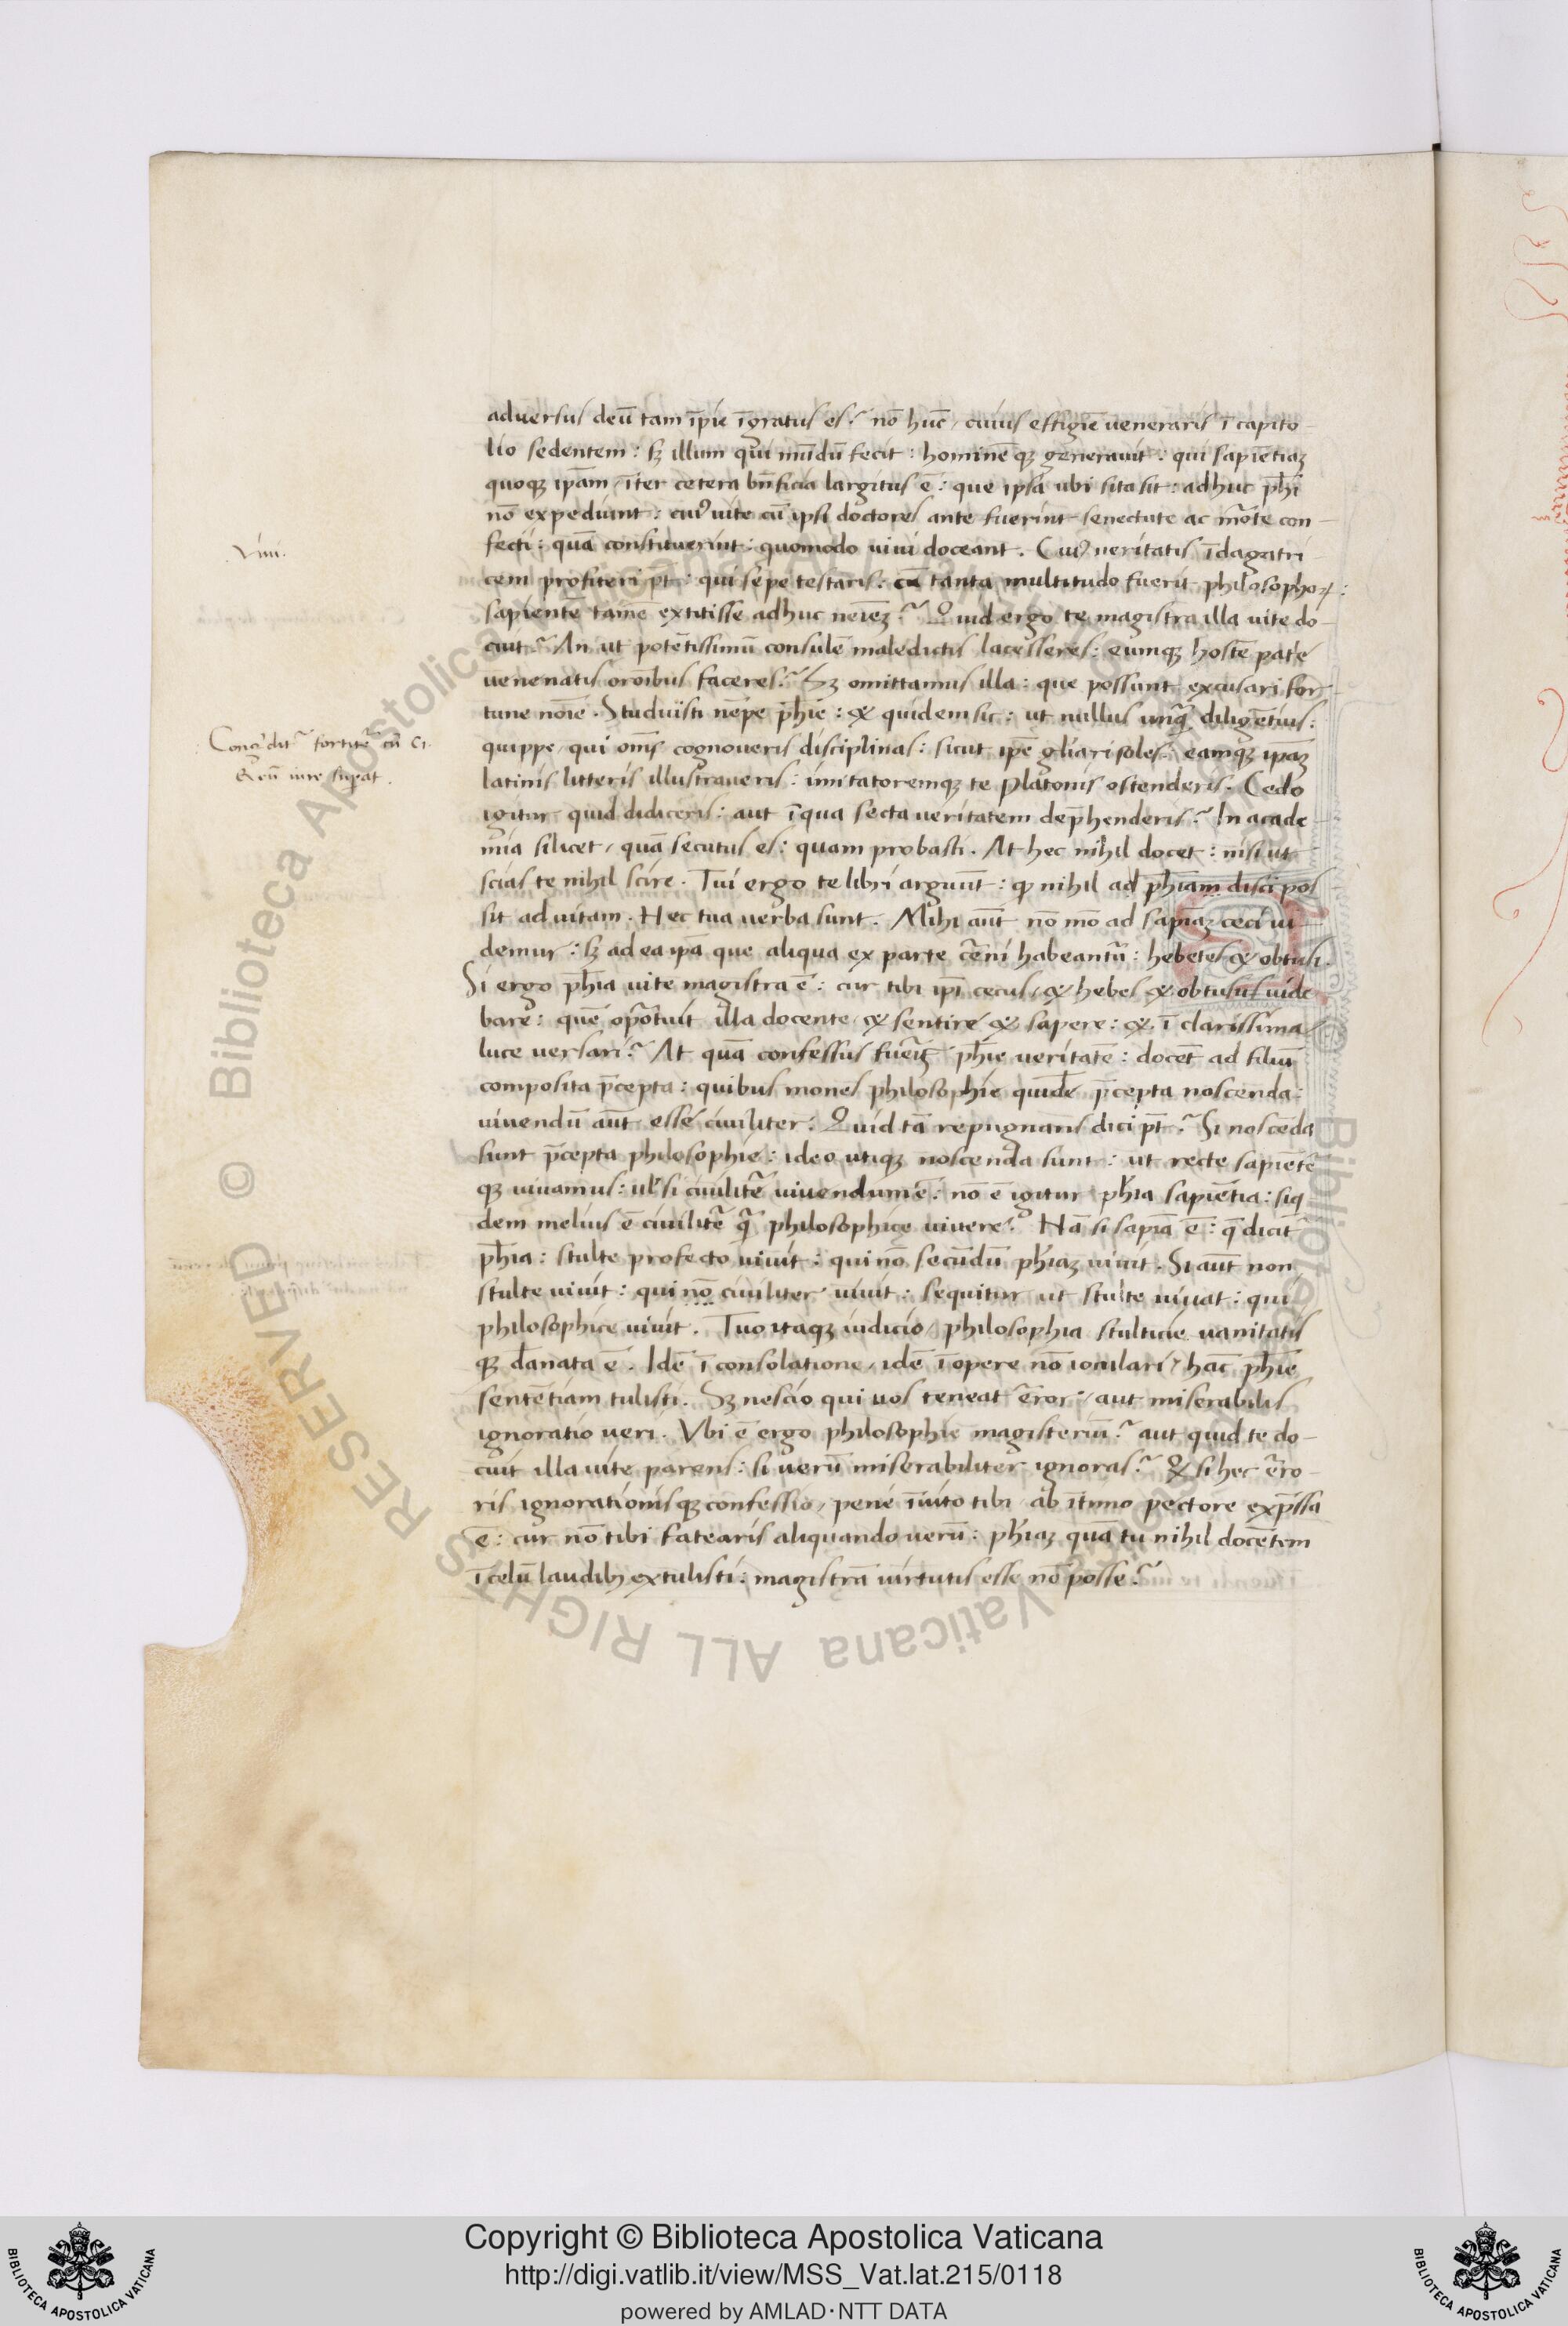 adversus deū tam īpie īgratus es? nō hūc / cuius effigiē veneraris ī capito
lio sedentem : sꝫ illum qui mūdū fecit : hominēqꝫ generavit : qui sapiētiaꝫ
quoqꝫ ip̄am / īter cetera bn̄ficia largitus ē : que ipsa ubi sita sit : adhuc ph̄i
nō expediunt : cuiꝰ vite cū ipsi doctores ante fuerint senectute ac mo͂te con
fecti : quā constituerint : quomodo vivi doceant . Cuiꝰ veritatis īdagatri
Viiii.
cem profiteri pt̄ : qui sepe testaris : cū tanta multitudo fuerit philosophoꝝ :
sapientē tamē extitisse adhuc nemīeꝫ ? Quid ergo te magistra illa vite do
cuit? An ut potētissimū consulē maledictis lacesseres : eumqꝫ hostē pat͂e
venenatis oro͞ibus faceres ? Sꝫ omittamus illa : que possunt excusari for
tune noīe . Studuisti nēpe ph̄ie : & quidem sic : ut nullus unq̄ͣ diligētius :
Congͬdit͂ fortit͂ cū Ci.
& eū iure supat .
quippe / qui om̄s cognoveris disciplinas : sicut ip̄e gl̄iari soles : eamqꝫ ip̄aꝫ
latinis litteris illustraveris : imitatoremqꝫ te Platonis ostenderis . Cedo
igitur quid didiceris : aut ī qua secta veritatem dep̄henderis? In acade
mia silicet / quā secutus es : quam probasti . At hec nihil docet : nisi ut
scias te nihil scire . Tui ergo te libri arguūt : ꝙ nihil ad ph̄iam disci pos
sit ad vitam . Hec tua verba sunt . Mihi aūt nō mō ad sapīaꝫ ceci vi
demur : sꝫ ad ea ip̄a que aliqua ex parte c͂eni habeant͂ : hebetes & obtusi .
Si ergo ph̄ia vite magistra ē : cur tibi ip̄i cecus / & hebes & obtusus vide
bare : quē opo͂tuit illa docente / & sentire & sapere : & ī clarissima
luce versari? At quā confessus fueris ph̄ie veritatē : docēt ad filiū
composita p̄cepta : quibus mones philosophie quidē p̄cepta noscenda :
vivendū aūt esse civiliter . Quid tā repugnans dici pt̄ ? Si noscēda
sunt p̄cepta philosophie : ideo utiqꝫ noscenda sunt : ut recte sapiēt͂
qꝫ vivamus : ul̄ si civilit͂ vivendum ē : nō ē igitur ph̄ia sapiētia : siq̇
dem melius ē civilit͂ q̄ͣ philosophice vivere . Nā si sapīa ē : q̄ dicit͂
ph̄ia : stulte profecto vivit : qui nō secūdū ph̄iaꝫ vivit . Si aūt non
stulte vivit : qui nō civiliter vivit : sequitur ut stulte vivat : qui
philosophice vivit . Tuo itaqꝫ iudicio / philosophia stulticie vanitatis
qꝫ da͞nata ē . Idē ī consolatione / idē ī opere nō ioculari / hāc ph̄ie
sentētiam tulisti . Sꝫ nescio qui vos teneat e͂ror / aut miserabilis
ignoratio veri . Ubi ē ergo philosophie magisteriū ? aut quid te do
cuit illa vite parens : si verū miserabiliter ignoras ? Q̱ si hec e͂ro
ris ignorationisqꝫ confessio / pene īvito tibi ab ītimo pectore exp̄ssa
ē : cur nō tibi fatearis aliquando verū : ph̄iaꝫ quā tu nihil docētem
ī celū laudibꝫ extulisti : magistrā virtutis esse nō posse ?
© Biblioteca Apostolica Vaticana ALL RIGHTS RESERVED
Copyright © Biblioteca Apostolica Vaticana
http://digi.vatlib.it/view/MSS_Vat.lat.215/0118
powered by AMLAD·NTT DATA
BIBLIOTECA APOSTOLICA VATICANA
BIBLIOTECA APOSTOLICA VATICANA